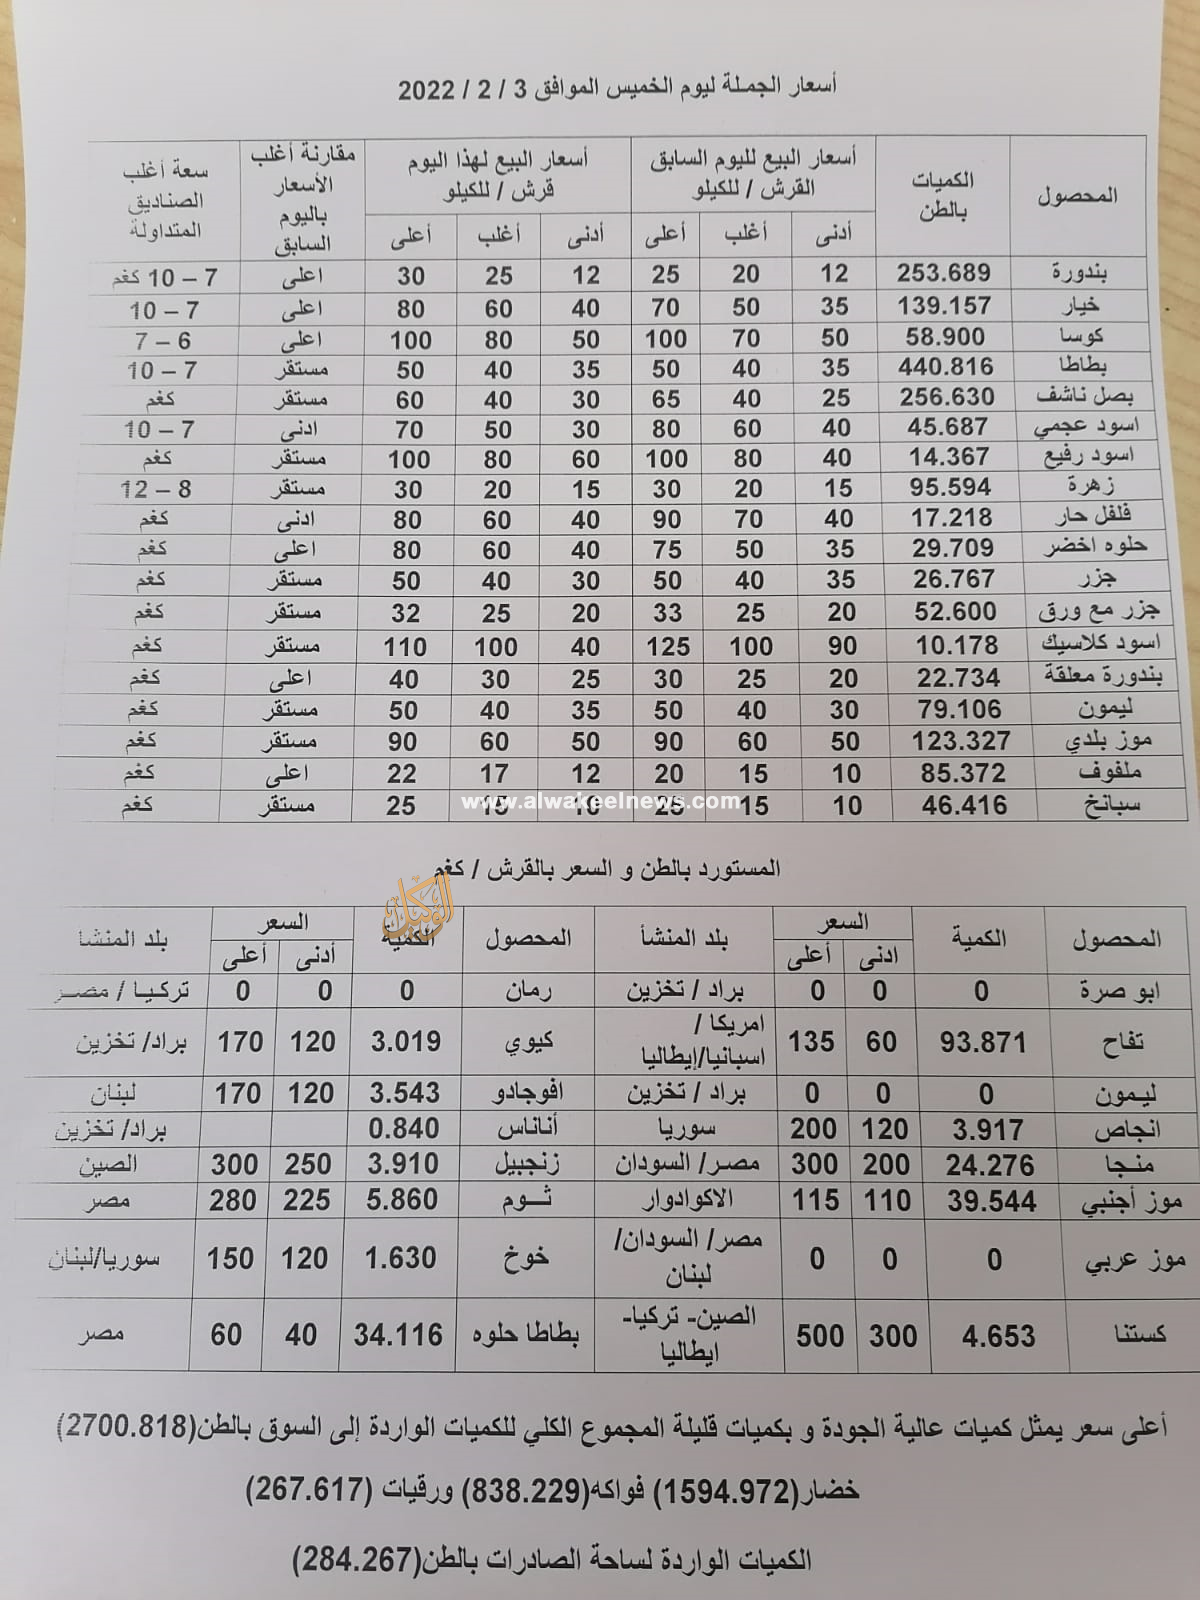 أسعار الجملة ليوم الخميس الموافق 3 / 2 / 2022
المحصول الكميات بالطن أسعار البيع لليوم السابق القرش / للكيلو أسعار البيع لهذا اليوم قرش / للكيلو مقارنة أغلب الأسعار باليوم السابق سعة أغلب الصناديق المتداولة
أدنى أغلب أعلى أدنى أغلب أعلى
بندورة 253.689 12 20 25 12 25 30 اعلى 7 – 10 كغم
خيار 139.157 35 50 70 40 60 80 اعلى 7 – 10
كوسا 58.900 50 70 100 50 80 100 اعلى 6 – 7
بطاطا 440.816 35 40 50 35 40 50 مستقر 7 – 10
بصل ناشف 256.630 25 40 65 30 40 60 مستقر كغم
اسود عجمي 45.687 40 60 80 30 50 70 ادنى 7 – 10
اسود رفيع 14.367 40 80 100 60 80 100 مستقر كغم
زهرة 95.594 15 20 30 15 20 30 مستقر 8 – 12
فلفل حار 17.218 40 70 90 40 60 80 ادنى كغم
حلوه اخضر 29.709 35 50 75 40 60 80 اعلى كغم
جزر 26.767 35 40 50 30 40 50 مستقر كغم
جزر مع ورق 52.600 20 25 33 20 25 32 مستقر كغم
اسود كلاسيك 10.178 90 100 125 40 100 110 مستقر كغم
بندورة معلقة 22.734 20 25 30 25 30 40 اعلى كغم
ليمون 79.106 30 40 50 35 40 50 مستقر كغم
موز بلدي 123.327 50 60 90 50 60 90 مستقر كغم
ملفوف 85.372 10 15 20 12 17 22 اعلى كغم
سبانخ 46.416 10 15 25 10 15 25 مستقر كغم
www.alwakeelnews.com
المستورد بالطن و السعر بالقرش / كغم
الوكيل
المحصول الكمية السعر بلد المنشأ المحصول الكمية السعر بلد المنشأ
ادنى أعلى أدنى أعلى
ابو صرة 0 0 0 براد / تخزين رمان 0 0 0 تركيا / مصر
تفاح 93.871 60 135 امريكا / اسبانيا/إيطاليا كيوي 3.019 120 170 براد/ تخزين
ليمون 0 0 0 براد / تخزين افوجادو 3.543 120 170 لبنان
انجاص 3.917 120 200 سوريا أناناس 0.840 براد/ تخزين
منجا 24.276 200 300 مصر/ السودان زنجبيل 3.910 250 300 الصين
موز أجنبي 39.544 110 115 الاكوادوار ثوم 5.860 225 280 مصر
موز عربي 0 0 0 مصر/ السودان/ لبنان خوخ 1.630 120 150 سوريا/لبنان
كستنا 4.653 300 500 الصين- تركيا- ايطاليا بطاطا حلوه 34.116 40 60 مصر
أعلى سعر يمثل كميات عالية الجودة و بكميات قليلة المجموع الكلي للكميات الواردة إلى السوق بالطن(2700.818)
خضار(1594.972) فواكه(838.229) ورقيات (267.617)
الكميات الواردة لساحة الصادرات بالطن(284.267)